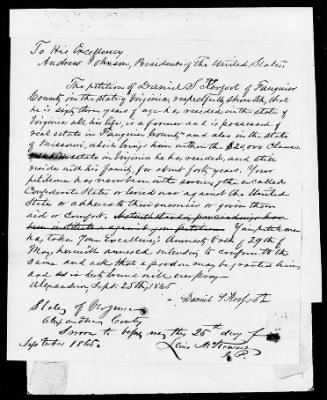 To His Excellency
Andrew Johnson, President of the United States
The petition of Daniel S. Kerfoot of Fauquier
County in the state of Virginia, respectfully showeth, that
he is sixty three years of age has resided in the state of
Virginia all his life, is a farmer and is possessed of
real estate in Fauquier County and also in the state
of Missouri, which brings him within the $20,000 Clause.
estate in Virginia he has resided, and still
resides with his family, for about forty years. Your
petitioner has never been in the service of the so called
Confederate States or levied war against the United
States or adhered to their enemies or given them
aid or comfort. No judicial proceedings have
been instituted against your petitioner. Your petitioner
has taken Your Excellency's Amnesty Oath of 29th of
May, herewith annexed intending to conform to the
same and asks that a pardon may be granted him,
and as in duty bound will ever pray—
Alexandria, Sept. 25th, 1865
Daniel S. Kerfoot
State of Virginia
Alexandria County
Sworn to before me, this 25th day of
September 1865.
Lewis McKenzie
J.P.